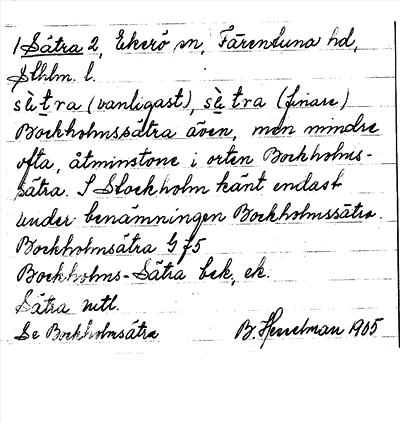 1 Sätra 2, Ekerö sn, Färentuna hd,
Sthlm. l.
sè̱tra (vanligast), sè̱tra (finare)
Bockholmssätra även, men mindre
ofta, åtminstone i orten Bockholms-
sätra. I Stockholm känt endast
under benämningen Bockholmssätra.
Bockholmsätra Gf5
Bockholms-Sätra bek, ek.
Sätra mtl.
Se Bockholmsätra B. Hesselman 1905